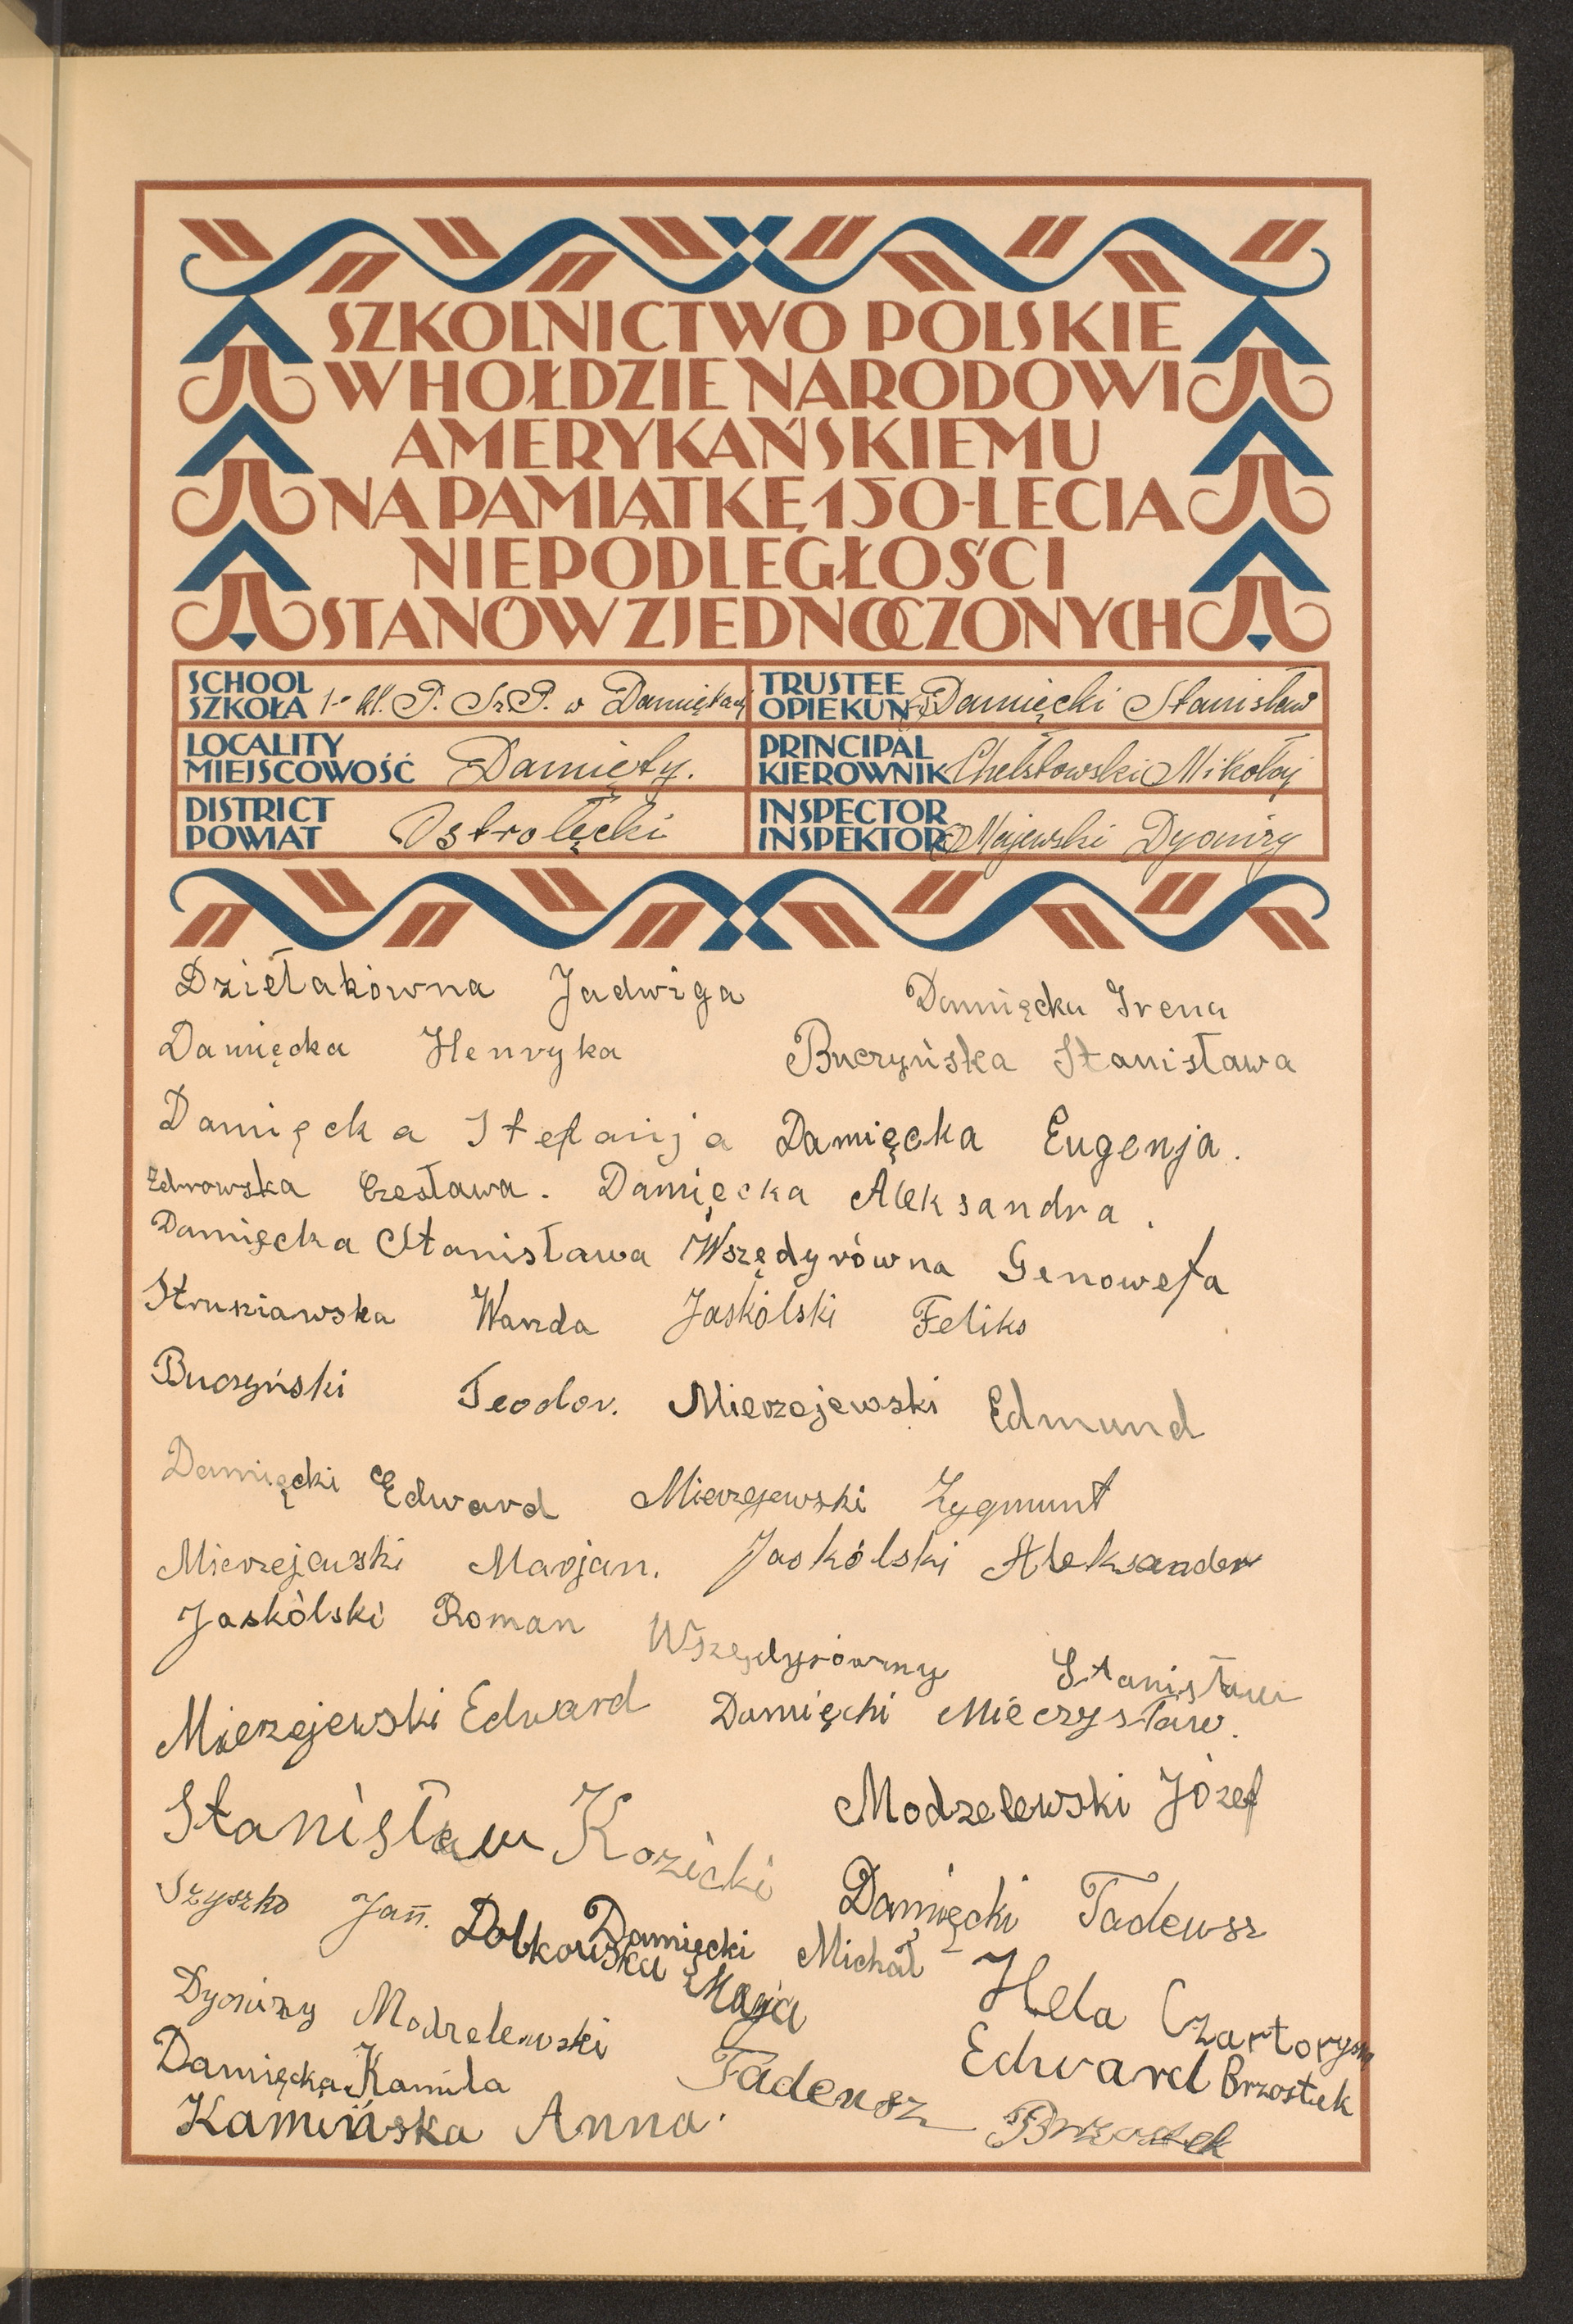 SZKOLNICTWO POLSKIE
W HOŁDZIE NARODOWI
AMERYKAŃSKIEMU
NA PAMIĄTKĘ 150-LECIA
NIEPODLEGŁOŚCI
STANÓW ZJEDNOCZONYCH
SCHOOL
SZKOŁA 1-o kl. P. Sz. P. w Damiętach
TRUSTEE
OPIEKUN Damięcki Stanisław
LOCALITY
MIEJSCOWOŚĆ Damięty.
PRINCIPAL
KIEROWNIK Chełstowski Mikołaj
DISTRICT
POWIAT Ostrołęcki
INSPECTOR
INSPEKTOR Majewski Dyonizy
Dziełakówna Jadwiga Damięcka Irena
Damięcka Henryka Buczyńska Stanisława
Damięcka Stefanja Damięcka Eugenja.
Zdrowska Czesława. Damięcka Aleksandra.
Damięcka Stanisława Wszędyrówna Genowefa
Struniawska Wanda Jaskólski Feliks
Buczyński Teodor. Mierzejewski Edmund
Damięcki Edward Mierzejewski Zygmunt
Mierzejewski Marjan. Jaskólski Aleksander
Jaskólski Roman Wszędyrówny Stanisław
Mierzejewski Edward Damięcki Mieczysław.
Stanisław Kozicki Modzelewski Józef
Szyszko Jan. Damięcki Tadeusz
Damięcki Michał
Dobkowska Marja
Dyonizy Modzelewski Hela Czartorys
Damięcka Kamila Edward Brzostek
Kamińska Anna. Tadeusz Brzostek